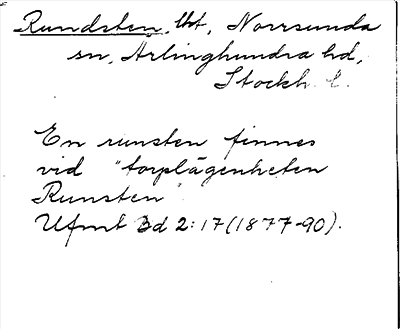 Rundsten, lht, Norrsunda
sn, Ärlinghundra hd,
Stockh. l.
En runsten finnes
vid "torplägenheten
Runsten"
Ufmt Bd 2:17 (1877-90).